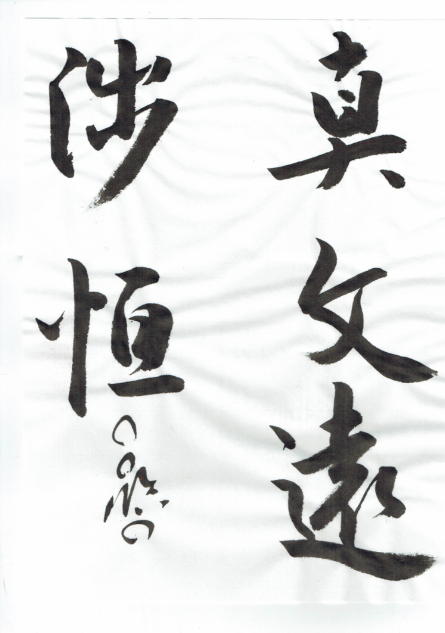 真文遠
涉恒